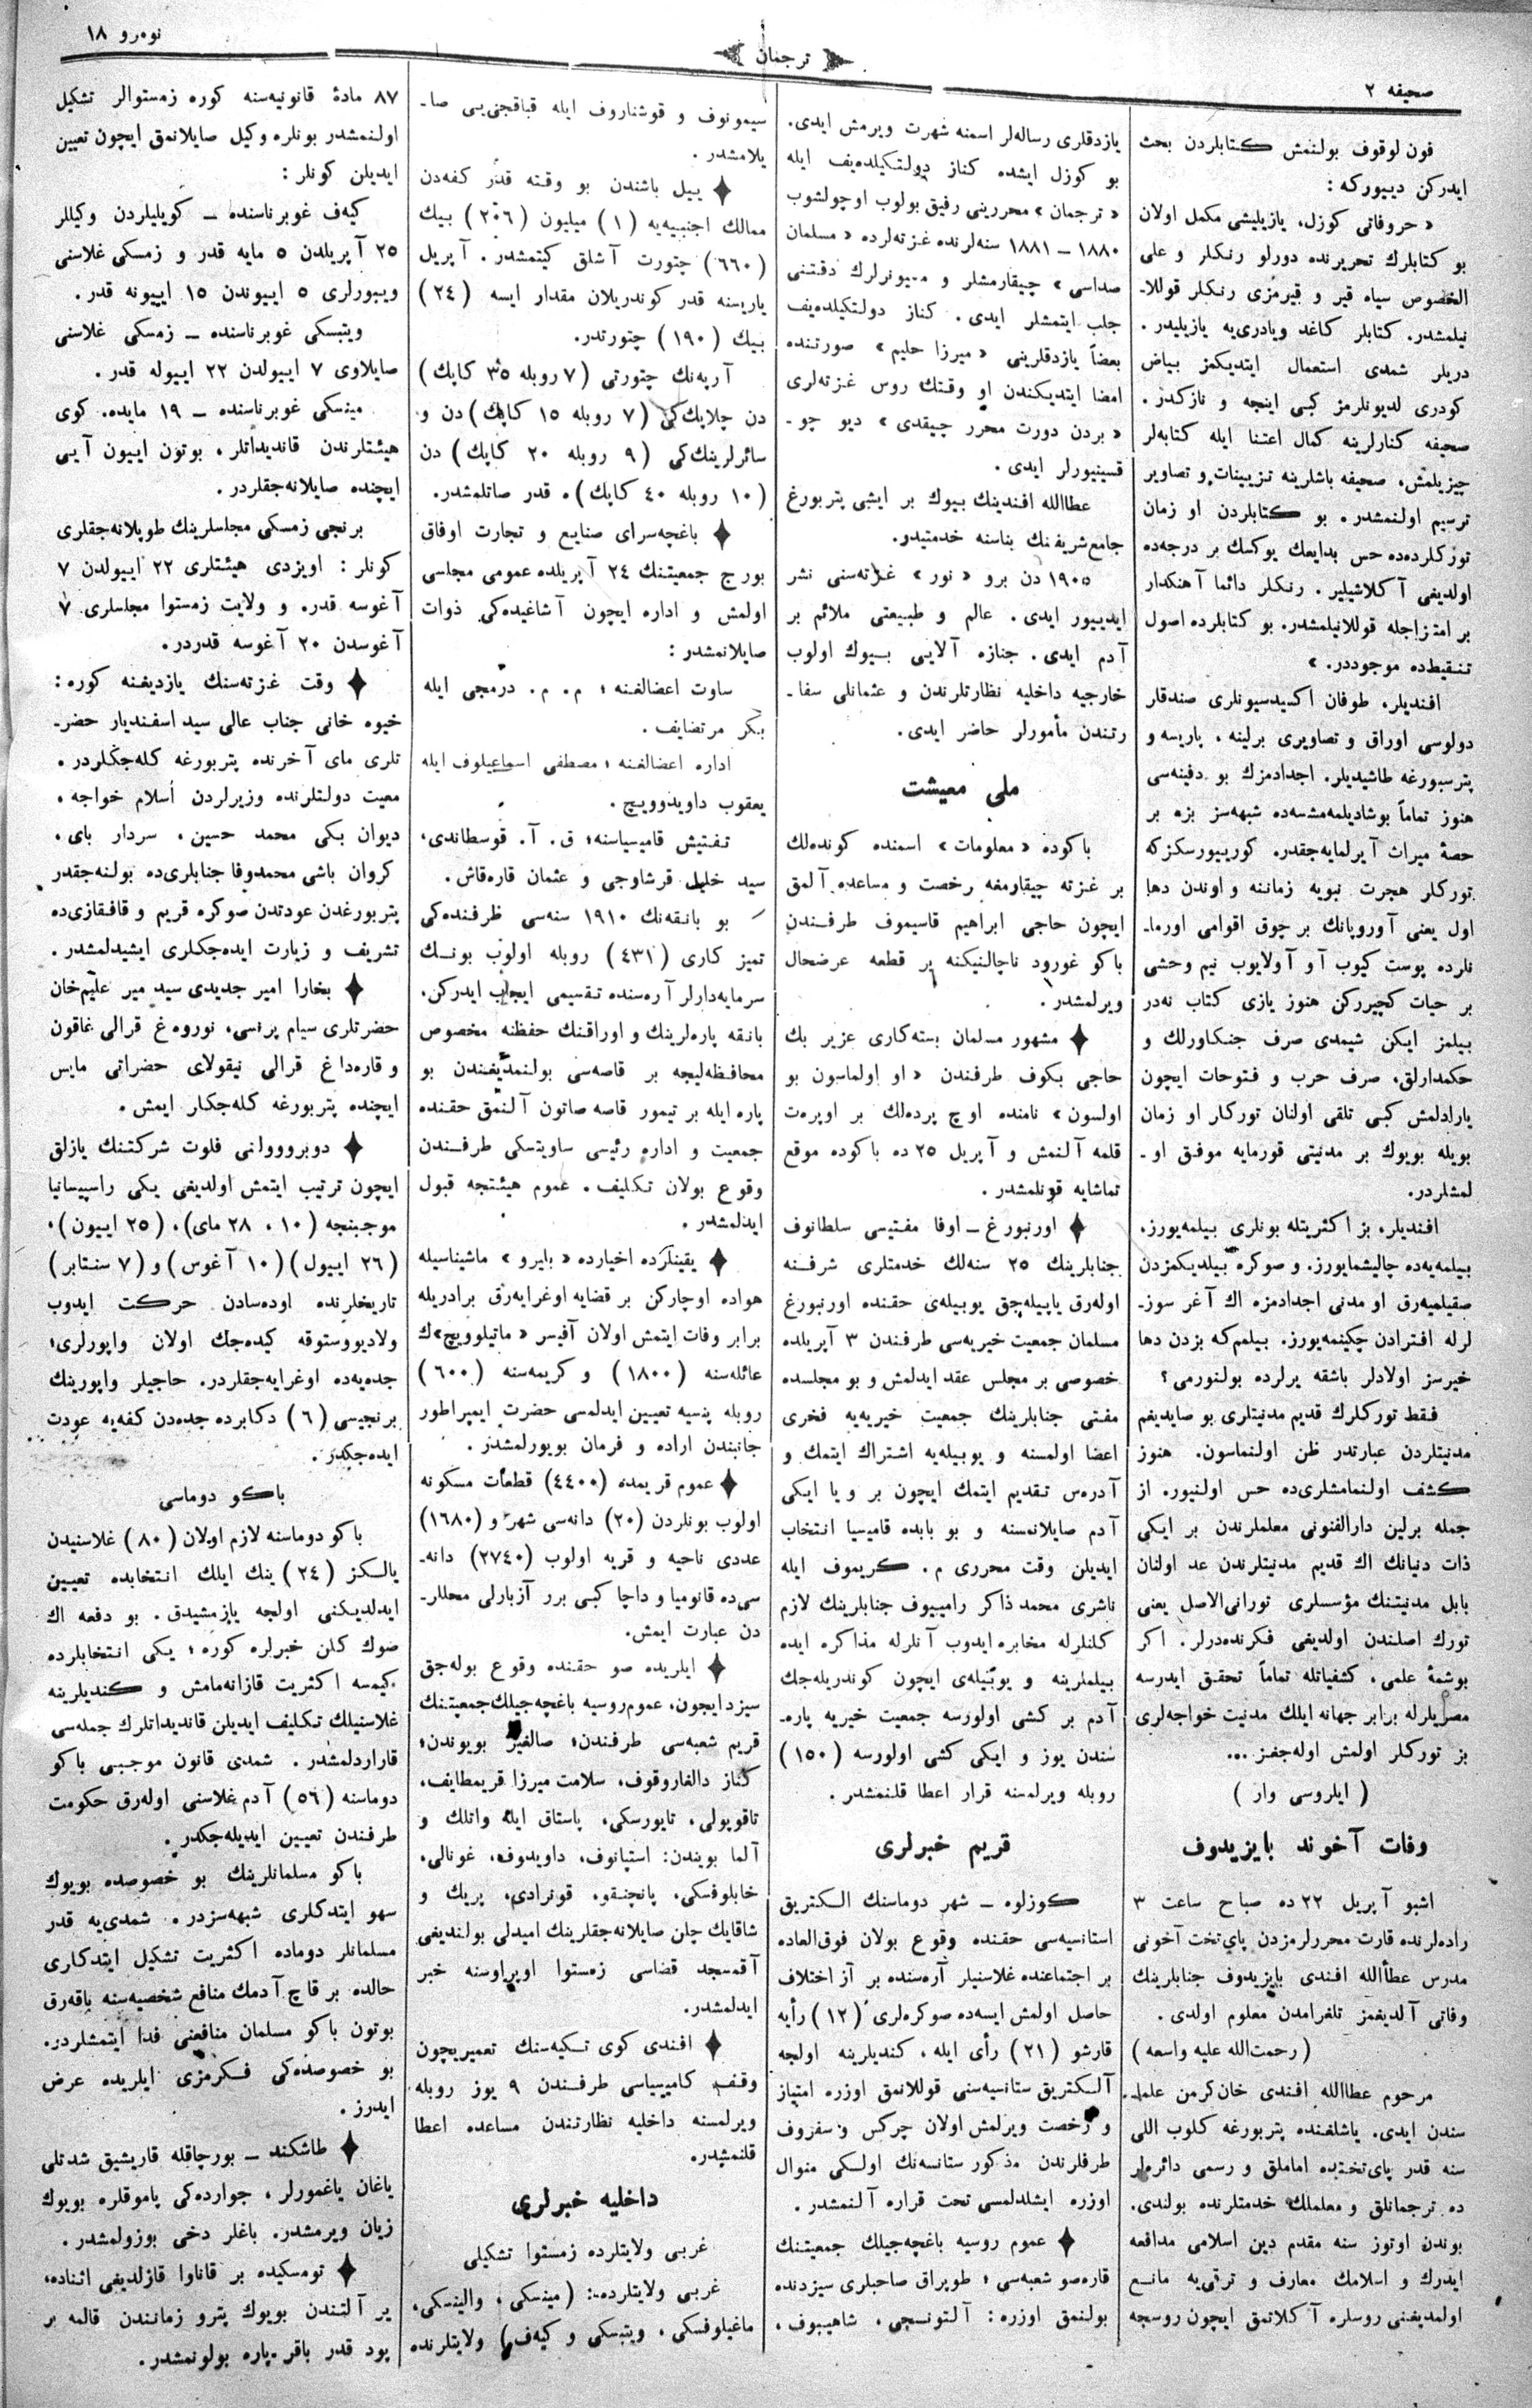 صحیفه ٢
ترجمان
نومرو ١٨
فون لوقوف بولنمش كتابلردن بحث
ایدركن دییوركه :
« حروفاتی كوزل، یازیلیشی مكمل اولان
بو كتابلرك تحریرنده دورلو رنكلر و علی
الخصوص سیاه قیر و قیرمزی رنكلر قوللا-
نیلمشدر. كتابلر كاغد ویادری‌یه یازیلیدر.
دریلر شمدی استعمال ایتدیكمز بیاض
كودری لدیونلرمز كبی اینجه و نازكدر.
صحیفه كنارلرینه كمال اعتنا ایله كتابه‌لر
چیزیلمش، صحیفه باشلرینه تزیینات و تصاویر
ترسیم اولنمشدر. بو كتابلردن او زمان
توركلرده‌ده حس بدایعك یوكسك بر درجه‌ده
اولدیغی آكلاشیلیر. رنكلر دائما آهنكدار
بر امتزاجله قوللانیلمشدر. بو كتابلرده اصول
تنقیط‌ده موجوددر. »
افندیلر، طوفان اكسپدسیونلری صندقلر
دولوسی اوراق و تصاویری برلینه، پاریسه و
پترسبورغه طاشیدیلر. اجدادمزك بو دفینه‌سی
هنوز تماماً بوشادیلمه‌مشسه‌ده شبهه‌سز بزه بر
حصهٔ میراث آیرلمایه‌جقدر. كوریورسكزكه
توركلر هجرت نبویه زماننه و اوندن دها
اول یعنی آوروپانك بر چوق اقوامی اورما-
نلرده پوست كیوب آو آولایوب نیم وحشی
بر حیات كچیررکن هنوز یازی كتاب نه‌در
بیلمز ایكن شیمدی صرف جنكاورلك و
حكمدارلق، صرف حرب و فتوحات ایچون
یارادلمش كبی تلقی اولنان توركلر او زمان
بویله بویوك بر مدنیتی قورمایه موفق او-
لمشلردر.
افندیلر، بز اكثریتله بونلری بیلمه‌یورز.
بیلمه‌یه‌ده چالیشمایورز. و صوكره بیلدیكمزدن
صقیلمیه‌رق او مدنی اجدادمزه اك آغر سوز-
لرله افترادن چكینمه‌یورز. بیلمم‌كه بزدن دها
خیرسز اولادلر باشقه یرلرده بولنورمی؟
فقط توركلرك قدیم مدنیتلری بو صایدیغم
مدنیتلردن عبارتدر ظن اولنماسون. هنوز
كشف اولنمامشلری‌ده حس اولنیور. از
جمله برلین دارالفنونی معلملرندن بر ایكی
ذات دنیانك اك قدیم مدنیتلرندن عد اولنان
بابل مدنیتنك مؤسسلری تورانی‌الاصل یعنی
تورك اصلندن اولدیغی فكرنده‌درلر. اكر
بوشمهٔ علمی، كشفیاتله تماماً تحقق ایدرسه
مصریلرله برابر جهانه ایلك مدنیت خواجه‌لری
بز توركلر اولمش اوله‌جغز ...
( ایلروسی وار )
وفات آخوند بایزیدوف
اشبو آپریل ٢٢ ده صباح ساعت ٣
راده‌لرنده قارت محررلرمزدن پای‌تخت آخونی
مدرس عطاالله افندی بایزیدوف جنابلرینك
وفاتی آلدیغمز تلغرامدن معلوم اولدی.
( رحمت‌الله علیه واسعه )
مرحوم عطاالله افندی خان‌كرمن علما-
سندن ایدی. یاشلغنده پتربورغه كلوب اللی
سنه قدر پای‌تختده اماملق و رسمی دائره‌لر
ده ترجمانلق و معلملك خدمتلرنده بولندی.
بوندن اوتوز سنه مقدم دین اسلامی مدافعه
ایدرك و اسلامك معارف و ترقی‌یه مانع
اولمدیغنی روسلره آكلاتمق ایچون روسجه
یازدقلری رساله‌لر اسمنه شهرت ویرمش ایدی.
بو كوزل ایشده كناز دولتكیلده‌یف ایله
« ترجمان » محررینی رفیق بولوب اوچولشوب
١٨٨٠ – ١٨٨١ سنه‌لرنده غزته‌لرده « مسلمان
صداسی » چیقارمشلر و میونرلرك دقتنی
جلب ایتمشلر ایدی. كناز دولتكیلده‌یف
بعضاً یازدقلرینی « میرزا حلیم » صورتنده
امضا ایتدیكندن او وقتك روس غزته‌لری
« بردن دورت محرر چیقدی » دیو چو-
قسینیورلر ایدی.
عطاالله افندینك بیوك بر ایشی پتربورغ
جامع‌شریفنك بناسنه خدمتیدر.
١٩٠٥ دن برو « نور » غزته‌سنی نشر
ایدییور ایدی. عالم و طبیعتی ملائم بر
آدم ایدی. جنازه آلایی بیوك اولوب
خارجیه داخلیه نظارتلرندن و عثمانلی سفا-
رتندن مأمورلر حاضر ایدی.
ملی معیشت
باكوده « معلومات » اسمنده كونده‌لك
بر غزته چیقارمغه رخصت و مساعده آلمق
ایچون حاجی ابراهیم قاسیموف طرفندن
باكو غورود ناچالنیكنه بر قطعه عرضحال
ویرلمشدر.
مشهور مسلمان بسته‌كاری عزیر بك
حاجی بكوف طرفندن « او اولماسون بو
اولسون » نامنده اوچ پرده‌لك بر اوپره‌ت
قلمه آلنمش و آپریل ٢٥ ده باكوده موقع
تماشایه قونلمشدر.
اورنبورغ – اوفا مفتیسی سلطانوف
جنابلرینك ٢٥ سنه‌لك خدمتلری شرفنه
اوله‌رق یاپیله‌جق یوبیله‌ی حقنده اورنبورغ
مسلمان جمعیت خیریه‌سی طرفندن ٣ آپریلده
خصوصی بر مجلس عقد ایدلمش و بو مجلسده
مفتی جنابلرینك جمعیت خیریه‌یه فخری
اعضا اولمسنه و یوبیله‌یه اشتراك ایتمك و
آدره‌س تقدیم ایتمك ایچون بر و یا ایكی
آدم صایلانه‌سنه و بو بابده قامیسیا انتخاب
ایدیلن وقت محرری م. كریموف ایله
ناشری محمد ذاكر رامییوف جنابلرینك لازم
كلنلرله مخابره ایدوب آنلرله مذاكره ایده
بیلملرینه و یوبیله‌ی ایچون كوندریله‌جك
آدم بر كشی اولورسه جمعیت خیریه پاره-
سندن یوز و ایكی كشی اولورسه (١٥٠)
روبله ویرلمسنه قرار اعطا قلنمشدر.
قریم خبرلری
كوزلوه – شهر دوماسنك الكتریق
استانسیه‌سی حقنده وقوع بولان فوق‌العاده
بر اجتماعنده غلاسنیلر آره‌سنده بر آز اختلاف
حاصل اولمش ایسه‌ده صوكره‌لری (١٢) رأیه
قارشو (٢١) رأی ایله، كندیلرینه اولجه
آلكتریق ستانسیه‌سنی قوللانمق اوزره امتیاز
و رخصت ویرلمش اولان چركس و سفزوف
طرفلرندن مذكور ستانسه‌نك اولكی منوال
اوزره ایشلدلمسی تحت قراره آلنمشدر.
عموم روسیه باغچه‌جیلك جمعیتنك
قاره‌صو شعبه‌سی ؛ طوپراق صاحبلری سیزدنده
بولنمق اوزره : آلتونجی، شاهیبوف،
سیمونوف و قوشناروف ایله قباقجی‌یی صا-
یلامشدر.
ییل باشندن بو وقته قدر كفه‌دن
ممالك اجنبیه‌یه (١) میلیون (٢٠٦) بیك
(٦٦٠) چتورت آشلق كیتمشدر. آپریل
یاریسنه قدر كوندریلان مقدار ایسه (٢٤)
بیك (١٩٠) چتورتدر.
آرپه‌نك چتورتی (٧ روبله ٣٥ كاپك)
دن چلاپك‌كی (٧ روبله ١٥ كاپك) دن و
سائرلرینك‌كی (٩ روبله ٢٠ كاپك) دن
(١٠ روبله ٤٠ كاپك). قدر صاتلمشدر.
باغچه‌سرای صنایع و تجارت اوفاق
بورج جمعیتنك ٢٤ آپریلده عمومی مجلسی
اولمش و اداره ایچون آشاغیده‌كی ذوات
صایلانمشدر :
ساوت اعضالغنه ؛ م. م. درمجی ایله
بكر مرتضایف.
اداره اعضالغنه ؛ مصطفی اسماعیلوف ایله
یعقوب داویدوویچ.
تفتیش قامیسیاسنه ؛ ق. آ. قوسطاندی،
سید خلیل قرشاوجی و عثمان قاره‌قاش.
بو بانقه‌نك ١٩١٠ سنه‌سی ظرفنده‌كی
تمیز كاری (٤٣١) روبله اولوب بونك
سرمایه‌دارلر آره‌سنده تقسیمی ایجاب ایدركن.
بانقه پاره‌لرینك و اوراقنك حفظنه مخصوص
محافظه‌لیجه بر قاصه‌سی بولنمدیغندن بو
پاره ایله بر تیمور قاصه صاتون آلنمق حقنده
جمعیت و اداره رئیسی ساویتسكی طرفندن
وقوع بولان تكلیف. عموم هیئتجه قبول
ایدلمشدر.
یقینلرده اخیارده « بلیرو » ماشیناسیله
هواده اوچاركن بر قضایه اوغرایه‌رق برادریله
برابر وفات ایتمش اولان آفیسر « ماتیلوویچ»ك
عائله‌سنه (١٨٠٠) و كریمه‌سنه (٦٠٠)
روبله پنسیه تعیین ایدلمسی حضرت ایمپراطور
جانبندن اراده و فرمان بویورلمشدر.
عموم قریمده (٤٤٠٠) قطعات مسكونه
اولوب بونلردن (٢٠) دانه‌سی شهر و (١٦٨٠)
عددی ناحیه و قریه اولوب (٢٧٤٠) دانه-
سی‌ده قانومیا و داچا كبی برر آزبارلی محللر-
دن عبارت ایمش.
ایلریده صو حقنده وقوع بوله‌جق
سیزد ایچون، عموم‌روسیه باغچه‌جیلك‌جمعیتنك
قریم شعبه‌سی طرفندن؛ صالغیر بویوندن؛
كناز دالغاروقوف، سلامت میرزا قریمطایف،
تاقوپولی، تایورسكی، پاستاق ایله واتلك و
آلما بویندن: استپانوف، داویدوف، غونالی،
خابلوفسكی، پانچنقو، قونرادی، پریك و
شاقایك چلن صایلانه‌جقلرینك امیدلی بولندیغی
آقمسجد قضاسی زمستوا اوپراوسنه خبر
ایدلمشدر.
افندی كوی تكیه‌سنك تعمیریچون
وقف كامیسیاسی طرفندن ٩ یوز روبله
ویرلمسنه داخلیه نظارتندن مساعده اعطا
قلنمشدر.
داخلیه خبرلری
غربی ولایتلرده زمستوا تشكیلی
غربی ولایتلرده: (مینسكی، والینسكی،
ماغیلوفسكی، ویتبسكی و كیه‌ف) ولایتلرنده
٨٧ مادهٔ قانونیه‌سنه كوره زمستوالر تشكیل
اولنمشدر بونلره وكیل صایلانمق ایچون تعیین
ایدیلن كونلر :
كیه‌ف غوبرناسنده – كویلیلردن وكیللر
٢٥ آپریلدن ٥ مایه قدر و زمسكی غلاسنی
ویبورلری ٥ اییوندن ١٥ اییونه قدر.
ویتبسكی غوبرناسنده – زمسكی غلاسنی
صایلاوی ٧ اییولدن ٢٢ اییوله قدر.
مینسكی غوبرناسنده – ١٩ مایده. كوی
هیئتلرندن قاندیداتلر، بوتون اییون آیی
ایچنده صایلانه‌جقلردر.
برنجی زمسكی مجلسلرینك طوپلانه‌جقلری
كونلر : اویزدی هیئتلری ٢٢ اییولدن ٧
آغوسه قدر. و ولایت زمستوا مجلسلری ٧
آغوسدن ٢٠ آغوسه قدردر.
وقت غزته‌سنك یازدیغنه كوره :
خیوه خانی جناب عالی سید اسفندیار حضر-
تلری مای آخرنده پتربورغه كله‌جكلردر.
معیت دولتلرنده وزیرلردن اسلام خواجه،
دیوان بكی محمد حسین، سردار بای،
كروان باشی محمدوفا جنابلری‌ده بولنه‌جقدر
پتربورغدن عودتدن صوكره قریم و قافقازی‌ده
تشریف و زیارت ایده‌جكلری ایشیدلمشدر.
بخارا امیر جدیدی سید میر علیم‌خان
حضرتلری سیام پرنسی، نوروه‌غ قرالی غاقون
و قاره‌داغ قرالی نیقولای حضراتی مایس
ایچنده پتربورغه كله‌جكلر ایمش.
دوبروووانی فلوت شركتنك یازلق
ایچون ترتیب ایتمش اولدیغی یكی راسپیسانیا
موجبنجه (١٠، ٢٨ مای)، (٢٥ اییون)،
(٢٦ اییول) (١٠ آغوس) و (٧ سنتابر)
تاریخلرنده اوده‌سادن حركت ایدوب
ولادیووستوقه كیده‌جك اولان واپورلری؛
جده‌یه‌ده اوغرایه‌جقلردر. حاجیلر واپورینك
برنجیسی (٦) دكابرده جده‌دن كفه‌یه عودت
ایده‌جكدر.
باكو دوماسی
باكو دوماسنه لازم اولان (٨٠) غلاسنیدن
یالكز (٢٤) ینك ایلك انتخابده تعیین
ایدلدیكنی اولجه یازمشیدق. بو دفعه اك
صوك كلن خبرلره كوره ؛ یكی انتخابلرده
كیمسه اكثریت قازانه‌مامش و كندیلرینه
غلاسنیلك تكلیف ایدیلن قاندیداتلرك جمله‌سی
قاراردلمشدر. شمدی قانون موجبی باكو
دوماسنه (٥٦) آدم غلاسنی اوله‌رق حكومت
طرفندن تعیین ایدیله‌جكدر.
باكو مسلمانلرینك بو خصوصده بویوك
سهو ایتدكلری شبهه‌سزدر. شمدی‌یه قدر
مسلمانلر دوماده اكثریت تشكیل ایتدكلری
حالده بر قاچ آدمك منافع شخصیه‌سنه باقه‌رق
بوتون باكو مسلمان منافعنی فدا ایتمشلردر.
بو خصوصده‌كی فكرمزی ایلریده عرض
ایدرز.
طاشكند – بورچاقله قاریشیق شدتلی
یاغان یاغمورلر، جوارده‌كی پاموقلره بویوك
زیان ویرمشدر. باغلر دخی بوزولمشدر.
تومسكیده بر قاناوا قازلدیغی اثناده،
یر آلتندن بویوك پترو زمانندن قالمه بر
پود قدر باقر پاره بولونمشدر.